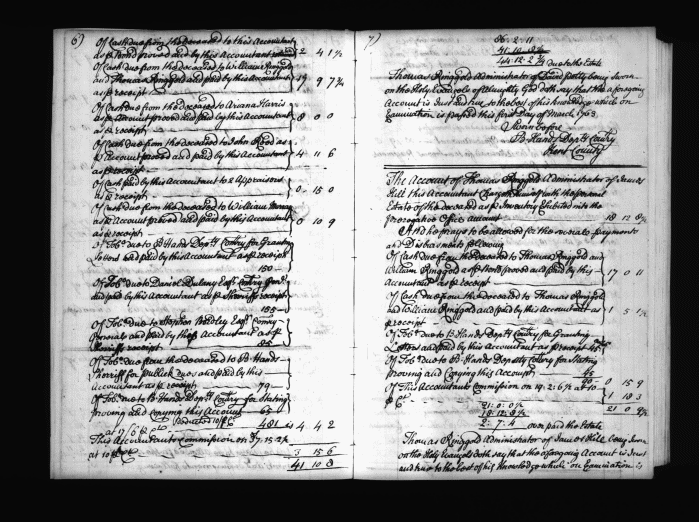 6)
Of Cash due from the deceased to this Accountant
as p Bond proved and by this Accountant 2 4 1½
Of Cash due from the deceased to William Ringgold
and Thomas Ringgold and paid by this Accountant
as p receipt 19 9 7¾
Of Cash due from the deceased to Ariana Harris
as p Account proved and paid by this Accountant
as p receipt 8 0 0
Of Cash due from the deceased to John as
p Account proved and paid by this Accountant
as p receipt 4 11 6
Of Cash paid by this Accountant to 2 Appraisers
as p receipt 0 15 0
Of Cash due from the deceased to William
as p Account proved and paid by this Accountant
as p receipt 0 10 9
Of Tobo. due to B Hands Depty Comry for Granting
Letters and paid by this Accountant as p receipt
150
Of Tobo. due to Daniel Dulany Esqr. Comry Genl.
and paid by this Accountant as p Sherriff receipt
155
Of Tobo. due to Stephen Bordley Esqr. Comry
General and paid by this Accountant as p
Sherriff receipt
Of Tobo. due from the deceased to B Hands
Sherriff for publick dues and paid by this
Accountant as p receipt 79
Of Tobo. due to B Hands Depty Comry for Stating
proving and Copying this Account 65
481 is 4 4 2
This Accountants Commission on 37.15.2½
at 10 p Ct 3 15 6
41 10 8
7)
86 . 2 . 11
41 . 10 . 8½
44 . 12 . 2¾ due to the Estate
Thomas Ringgold Administrator of being Sworn
on the Holy Evangels of Almighty God doth say that the aforegoing
Account is Just and true to the best of his knowledge which on
Examination is passed this first Day of March 1763
Sworn before
B Hands Depty Comry
Kent County
The Account of Thomas Ringgold Administrator of James
Hill this Accountant Charges himself with the
Estate of the deceased as p Inventory Exhibited into the
Prerogative Office amount 18 12 8½
And he prays to be allowed for the several payments
and Disbursments following
Of Cash due from the deceased to Thomas Ringgold and
William Ringgold as p Note proved and paid by this
Accountant as p receipt 17 0 11
Of Cash due from the deceased to Thomas Ringgold
and William Ringgold and paid by this Accountant as
p receipt 1 5 1½
Of Tobo. due to B Hands Depty Comry for Granting
Letters and paid by this Accountant as p receipt 45
Of Tobo. due to B Hands Deputy Comry for Stating
Proving and Copying this Account 45
90 0 15 9
Of this Accountants Commission on 19 . 2 . 6½ at 10
p Ct 1 18 3
21 . 0 . 0½ 21 0 0½
18 . 12 . 8½
2 . 7 . 4 over paid the Estate
Thomas Ringgold Administrator of James Hill being Sworn
on the Holy Evangels doth say that the aforegoing Account is Just
and true to the best of his Knowledge which on Examination is